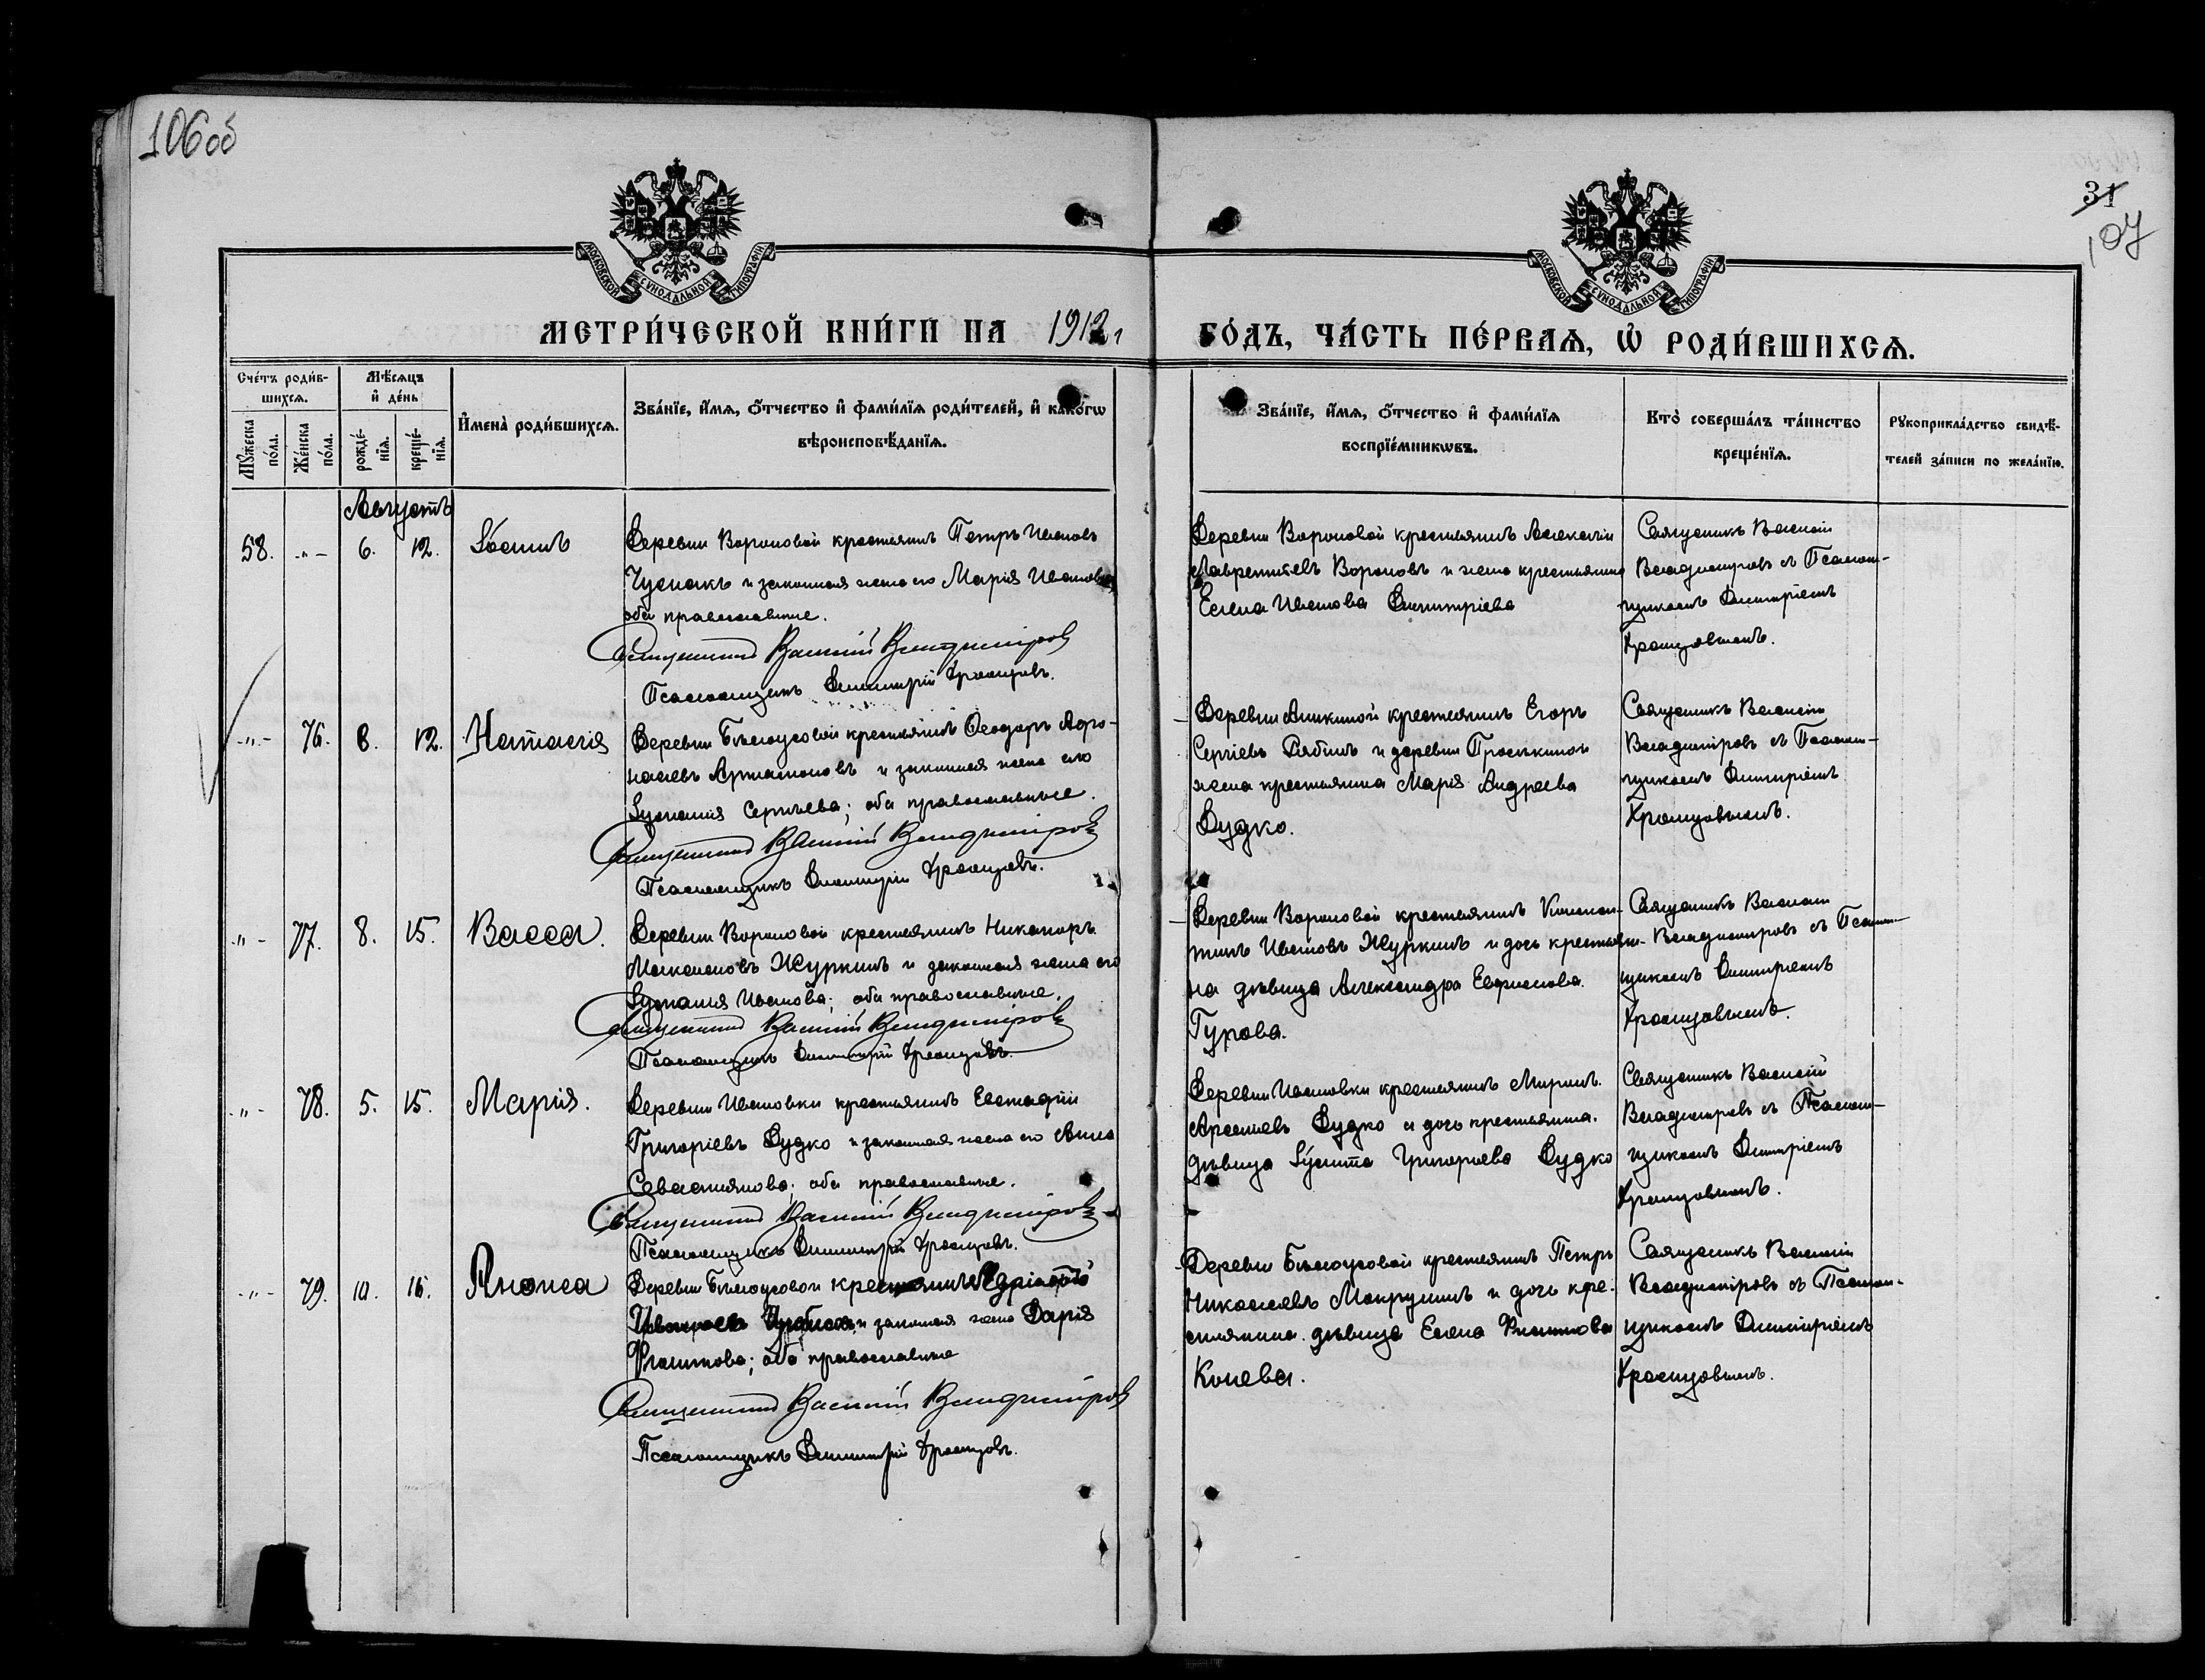 106 об
31
107
МОСКОВСКОЙ СѴНОДАЛЬНОЙ ТИПОГРАФІИ
МОСКОВСКОЙ СѴНОДАЛЬНОЙ ТИПОГРАФІИ
МЕТРИ́ЧЕСКОЙ КНИ́ГИ НА 1912 г
ГО́ДЪ, ЧА́СТЬ ПЕ́РВАѦ, Ѡ҆ РОДИ́ВШИХСѦ.
Сче́тъ роди́в-
шихсѧ.
Мꙋ́жеска
по́ла.
Же́нска
по́ла.
Мѣ́сѧцъ
и҆ де́нь
рожде́-
нїѧ.
креще́-
нїѧ.
И҆мена̀ роди́вшихсѧ.
Зва́нїе, и҆́мѧ, ѻ҆́тчество и҆ фами́лїѧ роди́телей, и҆ како́гѡ
вѣроисповѣ́данїѧ.
Зва́нїе, и҆́мѧ, ѻ҆́тчество и҆ фами́лїѧ
воспрїе́мникѡвъ.
Кто̀ соверша́лъ та́инство
креще́нїѧ.
Рꙋкоприкла́дство свидѣ́-
телей за́писи по жела́нїю.
Августъ
58. -"- 6. 12. Іоаннъ
Деревни Вороновой крестьянинъ Петръ Ивановъ
Чуснакъ и законная жена его Марія Иванова
оба православные.
Священникъ Василій Владиміров
Псаломщикъ Димитрій Храмцовъ.
Деревни Вороновой крестьянинъ Алексій
Лаврентіевъ Вороновъ и жена крестьянина
Елена Иванова Димитріева
Священникъ Василій
Владиміровъ съ Псалом-
щикомъ Димитріемъ
Храмцовымъ.
-"- 76. 8. 12. Наталія
Деревни Бѣлоусовой крестьянинъ Ѳеодоръ Афо-
насіевъ Артамоновъ и законная жена его
Іуліанія Сергѣева; оба православные.
Священникъ Василій Владиміров
Псаломщикъ Димитрій Храмцовъ.
Деревни Аникиной крестьянинъ Егоръ
Сергіевъ Рябинъ и деревни Проськиной
жена крестьянина Марія Андреева
Дудко.
Священникъ Василій
Владиміровъ съ Псалом-
щикомъ Димитріемъ
Храмцовымъ.
-"- 77. 8. 15. Васса.
Деревни Вороновой крестьянинъ Никаноръ
Маканоловъ Журкинъ и законная жена его
Іуліанія Иванова; оба православные.
Священникъ Василій Владиміров
Псаломщикъ Димитрій Храмцовъ.
Деревни Вороновой крестьянинъ Констан-
тинъ Ивановъ Журкинъ и дочь крестьяни-
на дѣвица Александра
Гурова.
Священникъ Василій
Владиміровъ съ Псалом-
щикомъ Димитріемъ
Храмцовымъ.
-"- 78. 5. 15. Марія.
Деревни Ивановки крестьянинъ Евстафій
Григоріевъ Дудко и законная жена его Анна
Севастіянова; оба православные.
Священникъ Василій Владиміров
Псаломщикъ Димитрій Храмцовъ.
Деревни Ивановки крестьянинъ Миронъ
Арсеніевъ Дудко и дочь крестьянина
дѣвица Іулитта Григорьева Дудко
Священникъ Василій
Владиміровъ съ Псалом-
щикомъ Димитріемъ
Храмцовымъ.
-"- 79. 10. 16. Анѳиса
Деревни Бѣлоусовой
и законная жена Дарія
Филиппова; оба православные
Священникъ Василій Владиміров
Псаломщикъ Димитрій Храмцовъ.
Деревни Бѣлоусовой крестьянинъ Петръ
Николаевъ Мокрушинъ и дочь кре-
стьянина дѣвица Елена Филиппова
Конева.
Священникъ Василій
Владиміровъ съ Псалом-
щикомъ Димитріемъ
Храмцовымъ.